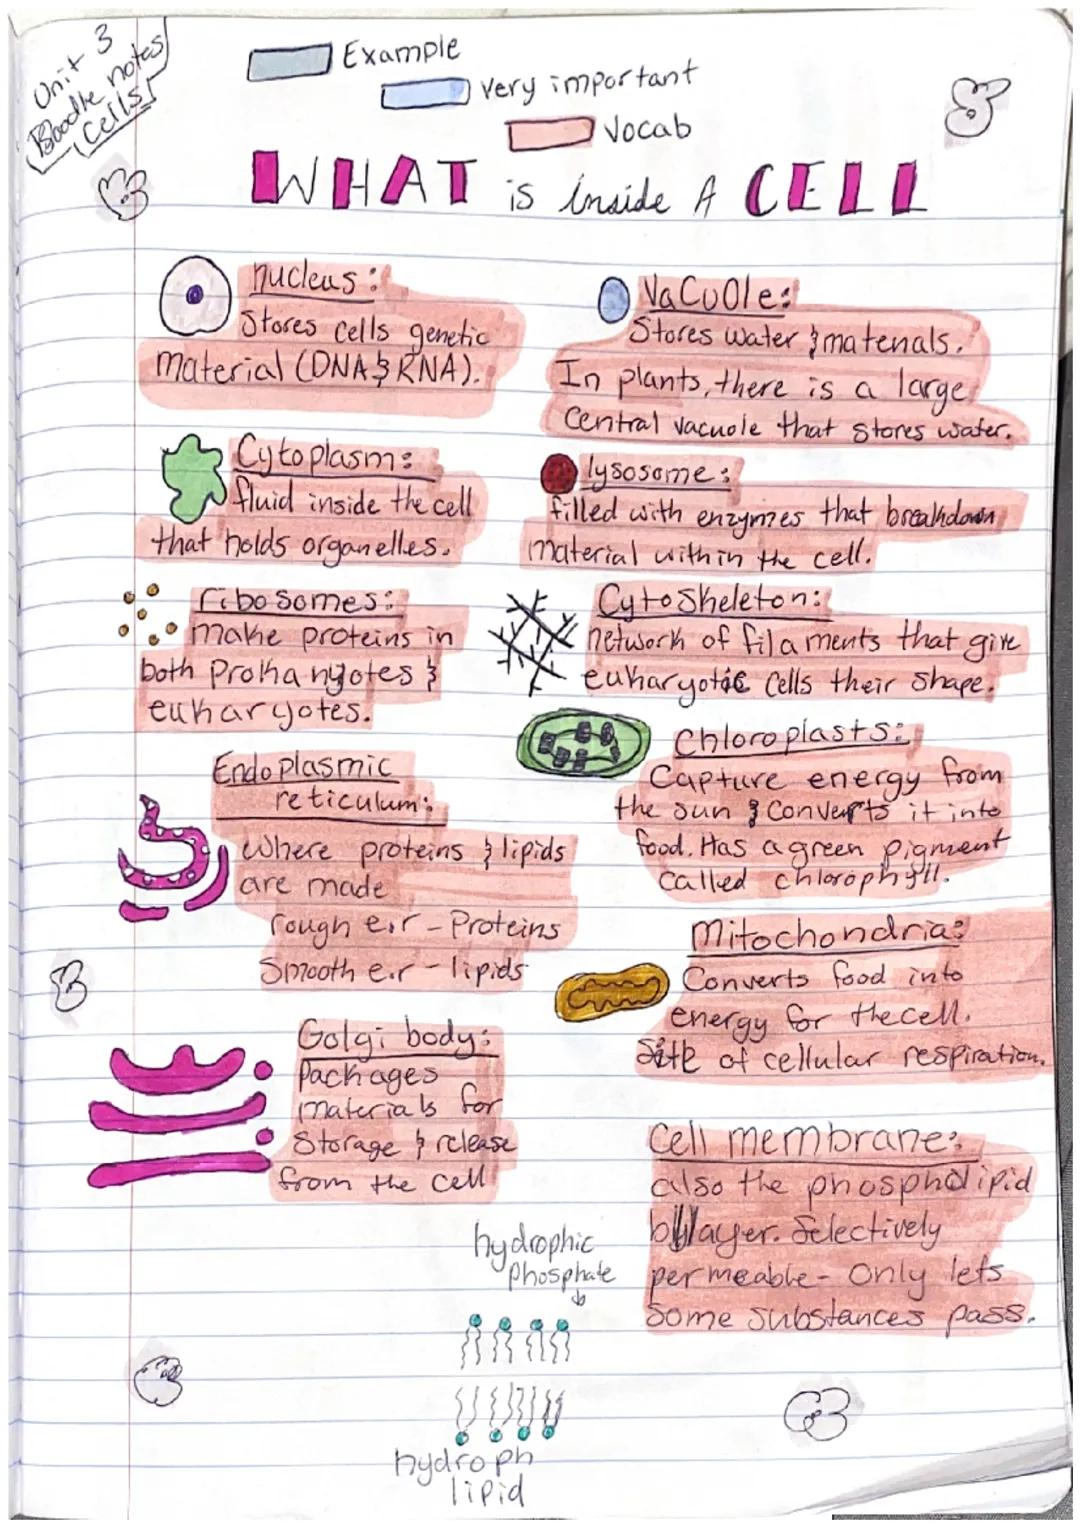 Unit 3
Doodle notes
Cells
Example
very important
Vocab
WHAT is inside A CELL
nucleus:
Stores cells genetic
material (DNA & RNA).
Cytoplasm:
fluid inside the cell
that holds organelles.
ribosomes:
make proteins in
both Prokaryotes &
eukaryotes.
Endoplasmic
reticulum:
Where proteins & lipids
are made
rough e.r - Proteins
Smooth e.r - lipids
Golgi body:
Packages
materials for
Storage & release
from the cell
Vacuole:
Stores water & materials.
In plants, there is a large
Central vacuole that stores water.
lysosome:
filled with enzymes that breakdown
material within the cell.
Cytoskeleton:
network of filaments that give
eukaryotic cells their shape.
Chloroplasts:
Capture energy from
the sun & converts it into
food. Has a green pigment
called chlorophyll.
Mitochondria:
Converts food into
energy for the cell.
Site of cellular respiration.
Cell membrane:
also the phospholipid
bilayer. Selectively
permeable - Only lets
Some substances pass.
hydrophic
phosphate
hydroph
lipid